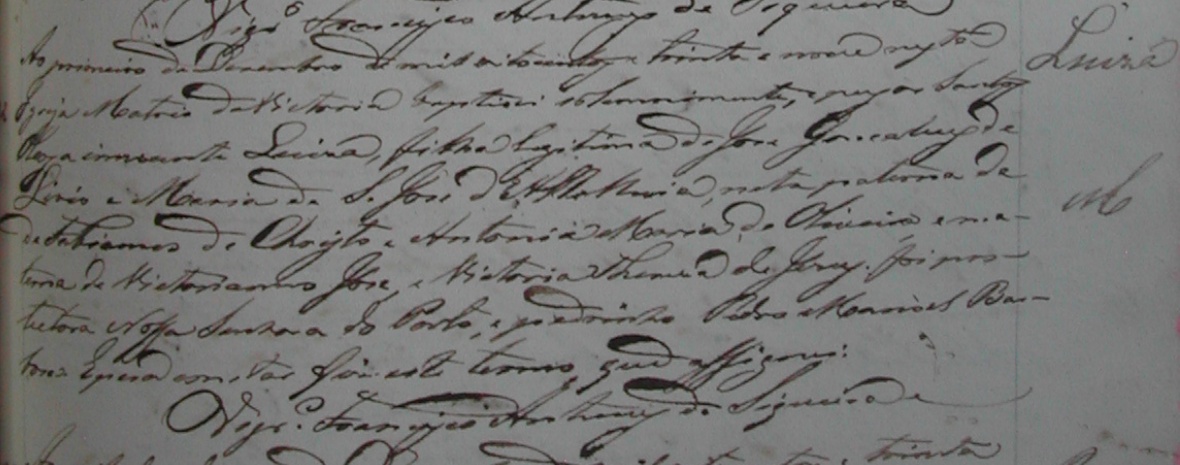 Vigr.o Francisco Antunes de Siqueira
Ao primeiro de Dezembro de mil oitocentos e trinta e nove nesta
Luiza
Igreja Matriz da Victoria baptizei solemnemente, e puz os Santos
Oleos a innocente Luiza, filha legitima de José Gonçalves de
Lirio e Maria de S. José d'Alleluia, neta paterna de
de Fabiano de Christo e Antonia Maria de Oliveira e ma-
terna de Victorianno José, e Victoria Thereza de Jesus. foi pro-
tectora Nossa Senhora do Parto, e padrinho Pedro Manoel Ba-
e p.a constar fiz este termo, que assignei.
Vigr.o Francisco Antunes de Siqueira
trinta